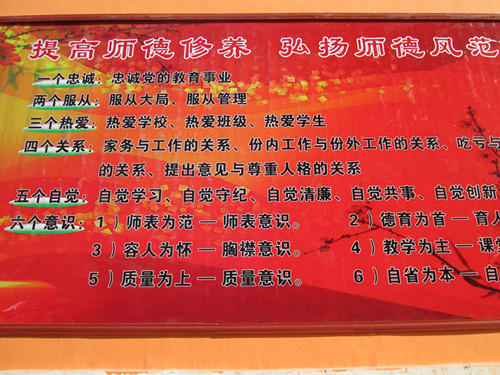 提高师德修养 弘扬师德风范
一个忠诚：忠诚党的教育事业
两个服从：服从大局、服从管理
三个热爱：热爱学校、热爱班级、热爱学生
四个关系：家务与工作的关系、份内工作与份外工作的关系、吃亏与
的关系、提出意见与尊重人格的关系
五个自觉：自觉学习、自觉守纪、自觉清廉、自觉共事、自觉创新
六个意识：1）师表为范—师表意识。 2）德育为首—育人
3）容人为怀—胸襟意识。 4）教学为主—课堂
5）质量为上—质量意识。 6）自省为本—自